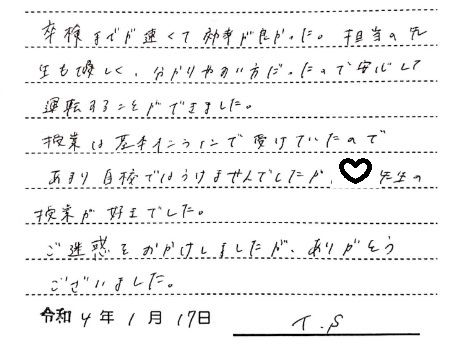 卒検までが速くて効率が良かった。担当の先
生も優しく、分かりやすい方だったので安心して
運転することができました。
授業は基本オンラインで受けていたので
あまり自校ではうけませんでしたが、♥先生の
授業が好きでした。
ご迷惑をおかけしましたが、ありがとう
ございました。
令和4年1月17日 T.S